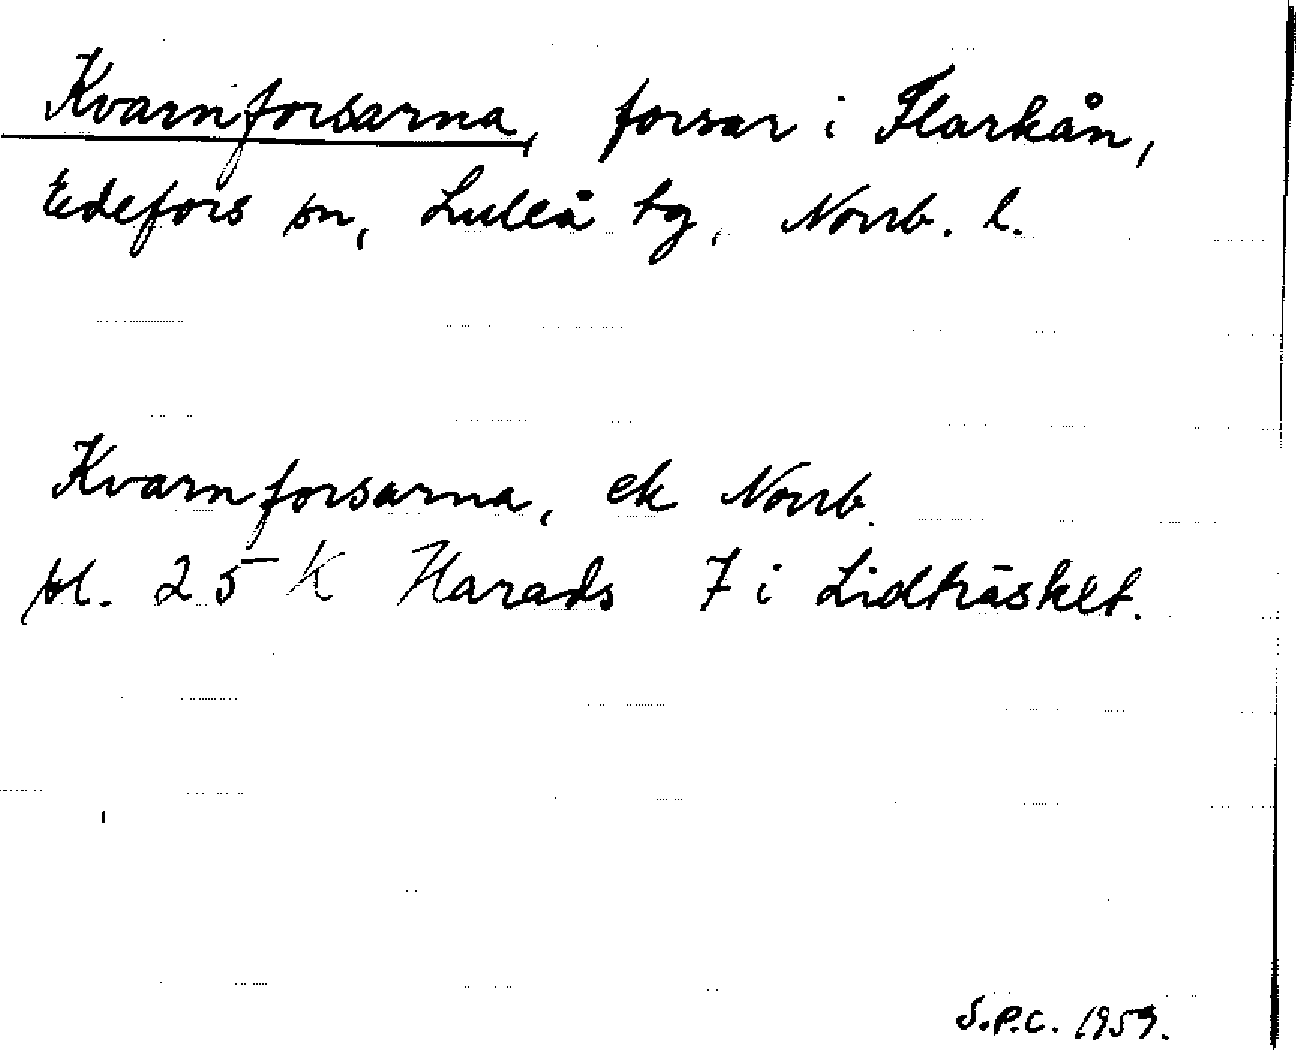 Kvarnforsarna, forsar i Flarkån,
Edefors sn, Luleå tg, Norrb. l.
Kvarnforsarna, ek Norrb.
bl. 25 K Harads 7 i Lidträsket.
S.P.C. 1959.